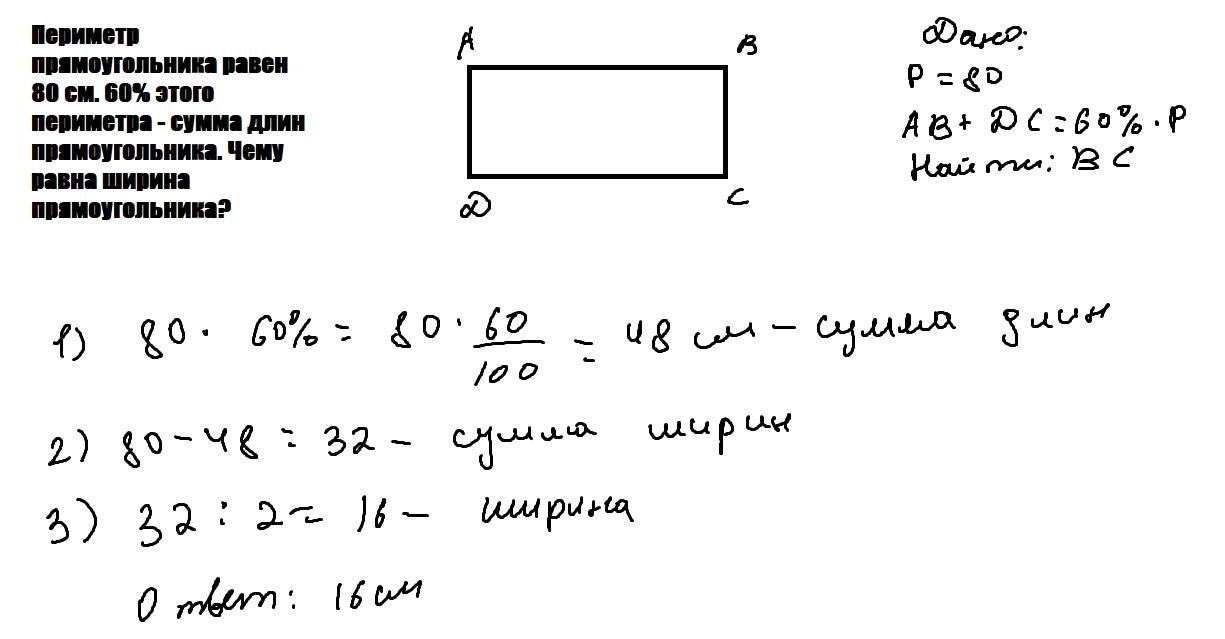 Периметр
прямоугольника равен
80 см. 60% этого
периметра - сумма длин
прямоугольника. Чему
равна ширина
прямоугольника?
A B
D C
Дано:
P = 80
AB + DC = 60% · P
Найти: BC
1) 80 · 60% = 80 · 60/100 = 48 см - сумма длин
2) 80 - 48 = 32 - сумма ширин
3) 32 : 2 = 16 - ширина
Ответ: 16 см